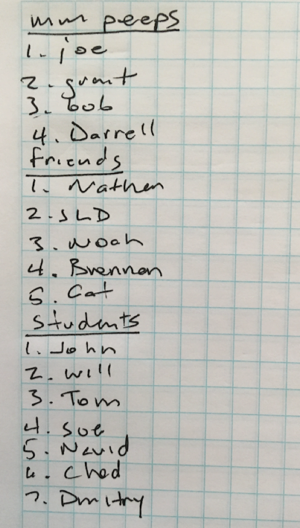 mm peeps
1. joe
2. grant
3. bob
4. Darrell
friends
1. Nathen
2. SLD
3. Noah
4. Brennen
5. Cat
Students
1. John
2. Will
3. Tom
4. Sue
5. Navid
6. Chad
7. Dmitry